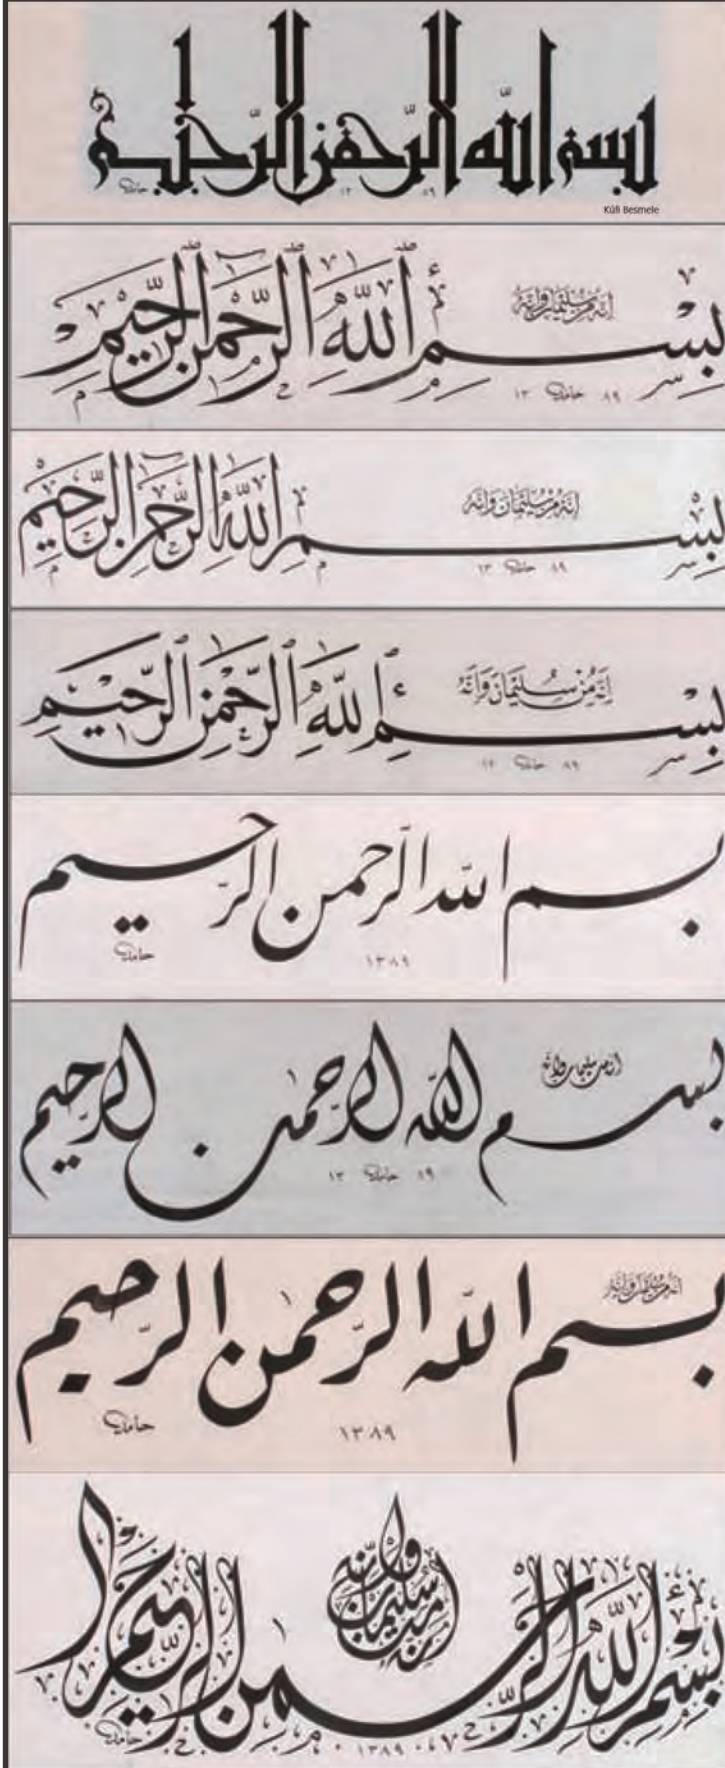 بسم الله الرحمن الرحيم
حامد ١٣٨٩
Kûfi Besmele
إنه من سليمان وإنه
بِسْمِ ٱللَّهِ ٱلرَّحْمٰنِ ٱلرَّحِيمِ
١٣ حامد ٨٩
إنه من سليمان وإنه
بِسْمِ اللَّهِ الرَّحْمٰنِ الرَّحِيمِ
١٣ حامد ٨٩
إنه من سليمان وإنه
بِسْمِ ٱللَّهِ ٱلرَّحْمٰنِ ٱلرَّحِيمِ
١٣ حامد ٨٩
بسم الله الرحمن الرحيم
حامد ١٣٨٩
إنه من سليمان وإنه
بسم الله الرحمن الرحيم
١٣ حامد ٨٩
إنه من سليمان وإنه
بسم الله الرحمن الرحيم
حامد ١٣٨٩
إنه من سليمان وإنه
بِسْمِ اللَّهِ الرَّحْمٰنِ الرَّحِيمِ
حامد ١٣٨٩